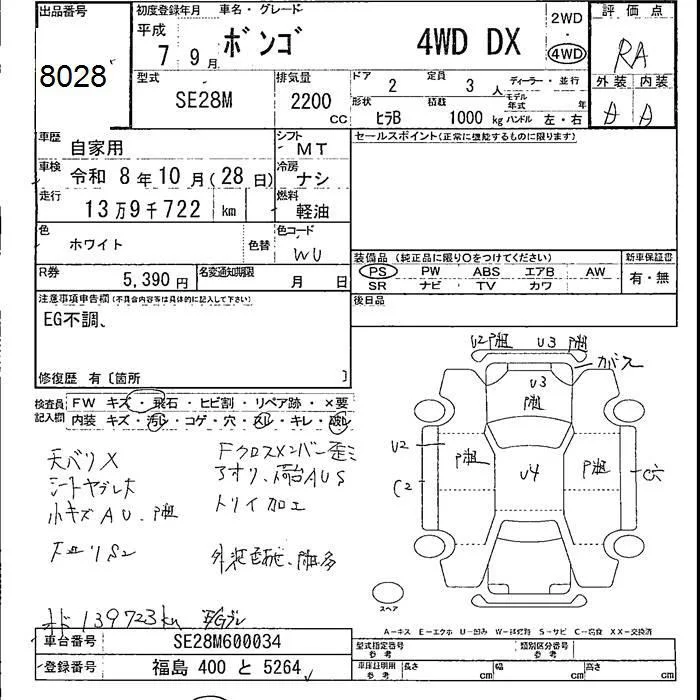 出品番号 8028
初度登録年月 車名・グレード
平成 7 9月 ボンゴ 4WD DX
2WD
4WD
評価点
RA
外装 内装
A
型式 SE28M
排気量 2200 CC
ドア 2 定員 3人 ディーラー・並行
形状 ヒラB 積載 1000kg モデル年式 年
ハンドル 左・右
車歴 自家用
シフト MT
車検 令和 8年 10月(28日)
冷房 ナシ
走行 13万9千722 km
燃料 軽油
色 ホワイト 色替
色コード WU
R券 5,390円 名変通知期限 月 日
セールスポイント(正常に機能するものに限ります)
装備品 (純正品に限り○をつけてください)
PS PW ABS エアB AW
SR ナビ TV カワ
新車保証書
有・無
後日品
注意事項申告欄(不具合内容等は具体的に記入して下さい)
EG不調、
修復歴 有〔箇所 〕
検査員記入欄
FW キズ・飛石・ヒビ割・リペア跡・×要
内装 キズ・汚レ・コゲ・穴・スレ・キレ・破レ
天バリ X
シートヤブレ大
小キズ A U
Fクロスメンバー歪ミ
アオリ、荷台 A U S
トリイ加工
139723km
U2 U3 ガラス
U3
U2
C2
U4
C穴
スペア
A-キズ E-エクボ U-凹み W-補修跡 S-サビ C-腐食 XX-交換済
車台番号 SE28M600034
登録番号 福島 400 と 5264
型式指定番号 参考 類別区分番号 参考
車庫証明用 参考 長さ cm 幅 cm 高さ cm